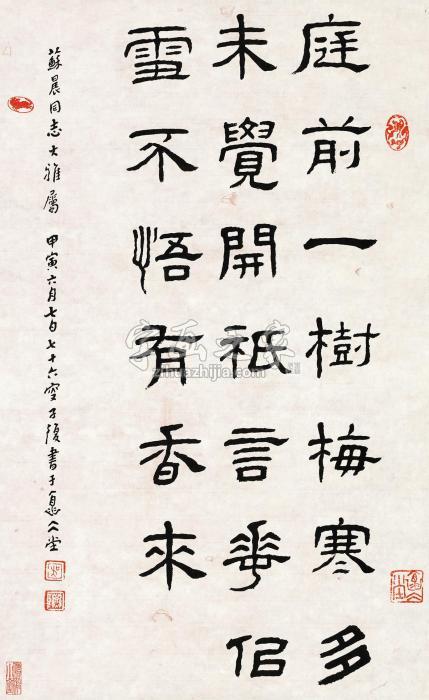 庭前一樹梅寒多
未覺開祇言華佀
雪不悟有香來
蘇晨同志大雅屬 甲寅六月七日七十六叟子復書于堂
字画之家
zihuazhijia.com